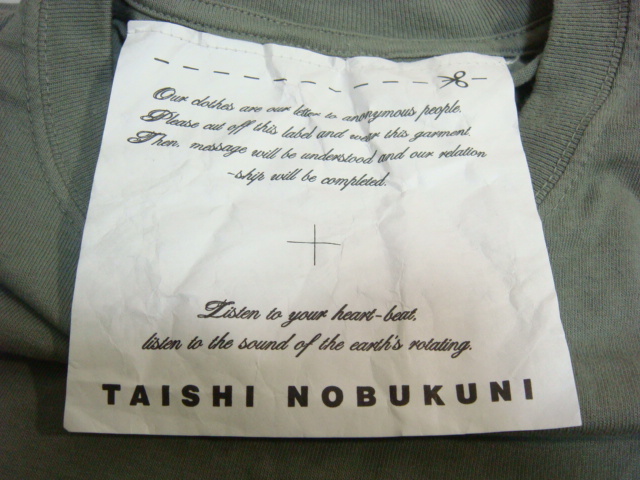 Our clothes are our letter to anonymous people.
Please cut off this label and wear this garment.
Then, message will be understood and our relation
-ship will be completed.
Listen to your heart-beat,
listen to the sound of the earth's rotating.
TAISHI NOBUKUNI